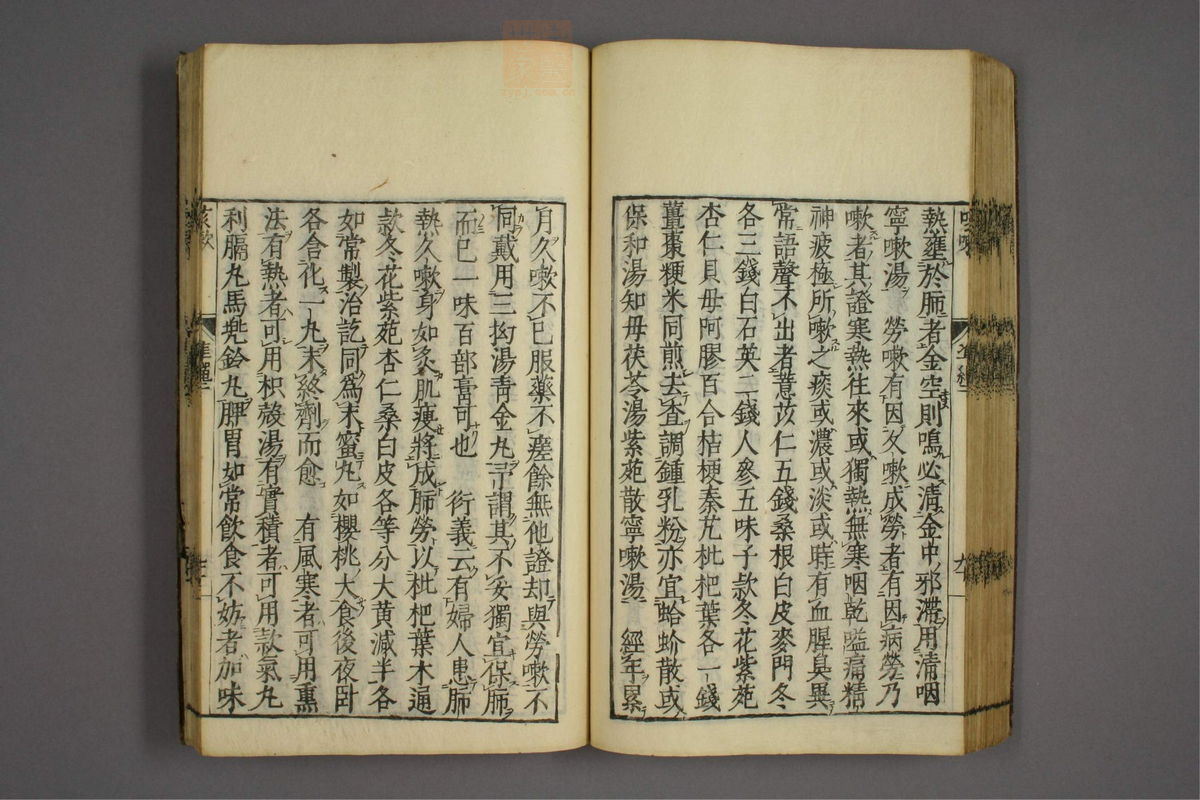 熱壅於肺者金空則鳴必淸金中邪滯用淸咽
寧嗽湯　勞嗽有因久嗽成勞者有因病勞乃
嗽者其證寒熱往來或獨熱無寒咽乾嗌痛精
神疲極所嗽之痰或濃或淡或時有血腥臭異
常語聲不出者薏苡仁五錢桑根白皮麥門冬
各三錢白石英二錢人參五味子款冬花紫苑
杏仁貝母阿膠百合桔梗秦艽枇杷葉各一錢
薑棗粳米同煎去查調鍾乳粉亦宜蛤蚧散或
保和湯知母茯苓湯紫苑散寧嗽湯　經年累
月久嗽不已服藥不瘥餘無他證却與勞嗽不
同戴用三拗湯靑金丸予謂其不妥獨宜保肺
而已一味百部膏可也　衍義云有婦人患肺
熱久嗽身如炙肌瘦將成肺勞以枇杷葉木通
款冬花紫苑杏仁桑白皮各等分大黃減半各
如常製治訖同爲末蜜丸如櫻桃大食後夜臥
各含化一丸未終劑而愈　有風寒者可用熏
法有熱者可用枳殼湯有實積者可用款氣丸
利膈丸馬兜鈴丸脾胃如常飮食不妨者加味
咳嗽